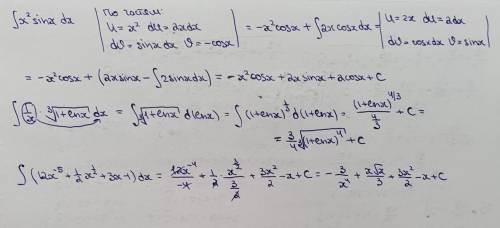 ∫x² sinx dx | по частям: u = x² du = 2xdx dv = sinxdx v = -cosx | = -x²cosx + ∫2xcosxdx = | u = 2x du = 2dx dv = cosxdx v = sinx |
= -x²cosx + (2xsinx - ∫2sinxdx) = -x²cosx + 2xsinx + 2cosx + C
∫ (1/x) · ³√(1+lnx) dx = ∫ ³√(1+lnx) d(lnx) = ∫ (1+lnx)^(1/3) d(1+lnx) = (1+lnx)^(4/3) / (4/3) + C =
= 3/4 ³√(1+lnx)⁴ + C
∫ (12x⁻⁵ + 1/2 x^(1/2) + 3x - 1) dx = 12x⁻⁴/-4 + 1/2 · x^(3/2) / (3/2) + 3x²/2 - x + C = -3/x⁴ + x√x/3 + 3x²/2 - x + C